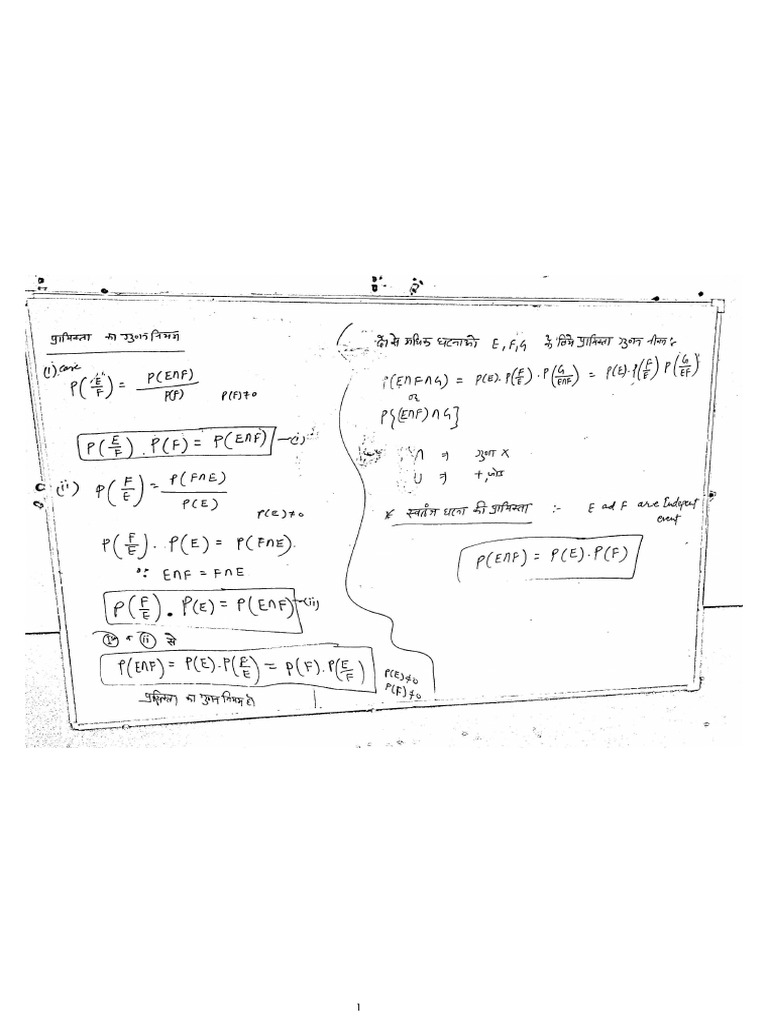 प्रायिकता का गुणन नियम
(i) case
P(E/F) = P(E∩F)/P(F) P(F)≠0
P(E/F) . P(F) = P(E∩F) —(i)
(ii) P(F/E) = P(F∩E)/P(E)
P(E)≠0
P(F/E) . P(E) = P(F∩E).
∵ E∩F = F∩E
P(F/E) . P(E) = P(E∩F) —(ii)
(ii) से
P(E∩F) = P(E).P(F/E) = P(F).P(E/F)
P(E)≠0
P(F)≠0
का गुणन नियम है।
दो से अधिक घटनाओ E, F, G के लिये प्रायिकता गुणन नियम :-
P(E∩F∩G) = P(E).P(F/E).P(G/E∩F) = P(E).P(F/E) P(G/EF)
or
P{(E∩F)∩G}
∩ ⇒ गुणा ×
∪ ⇒ +, जोड
* स्वतंत्र घटना की प्रायिकता :- E ad F are Indepent
event
P(E∩F) = P(E).P(F)
1